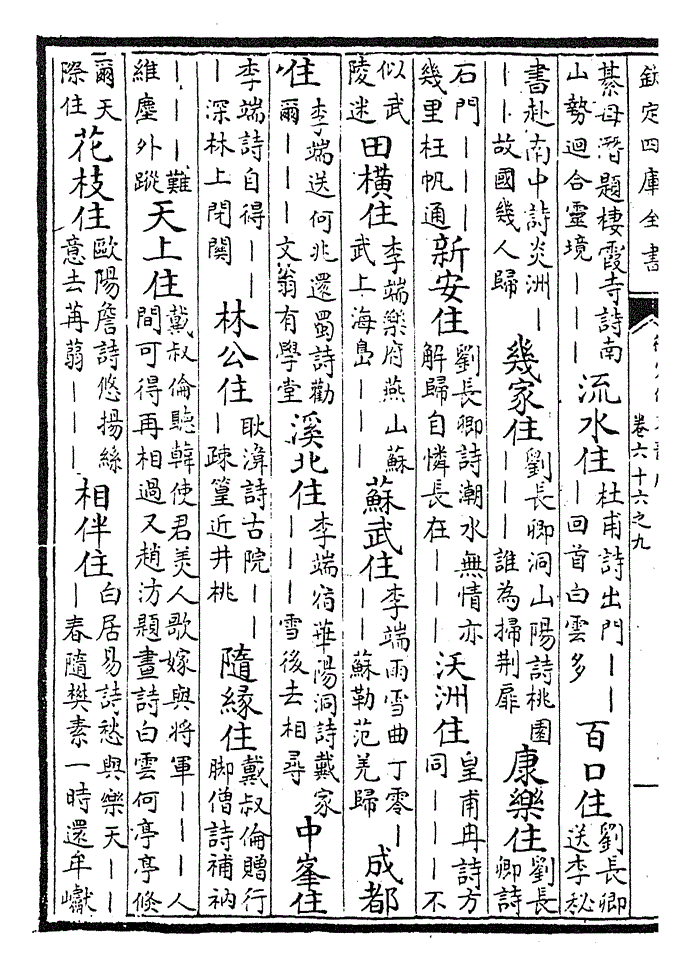 欽定四庫全書 卷六十六之九
綦毋潛題棲霞寺詩南山勢迴合靈境｜｜｜ 流水住 杜甫詩出門｜｜｜回首白雲多 百口住 劉長卿送李秘
書赴南中詩炎洲｜｜｜故國幾人歸 幾家住 劉長卿洞山陽詩桃園｜｜｜誰為掃荆扉 康樂住 劉長卿詩
石門｜｜｜幾里枉帆通 新安住 劉長卿詩潮水無情亦解歸自憐長在｜｜｜ 沃洲住 皇甫冉詩方同｜｜｜不
似武陵迷 田橫住 李端樂府燕山蘇武上海島｜｜｜ 蘇武住 李端雨雪曲丁零｜｜｜蘇勒范羌歸 成都
住 李端送何兆還蜀詩勸爾｜｜｜文翁有學堂 溪北住 李端宿華陽洞詩戴家｜｜｜雪後去相尋 中峯住
李端詩自得｜｜｜深林上閉關 林公住 耿湋詩古院｜｜｜疎篁近井桃 隨緣住 戴叔倫贈行脚僧詩補衲
｜｜｜難維塵外蹤 天上住 戴叔倫聽韓使君美人歌嫁與將軍｜｜｜人間可得再相過又趙汸題畫詩白雲何亭亭倏
爾天際住 花枝住 歐陽詹詩悠揚絲意去苒蒻｜｜｜ 相伴住 白居易詩愁與樂天｜｜｜春隨樊素一時還牟巘